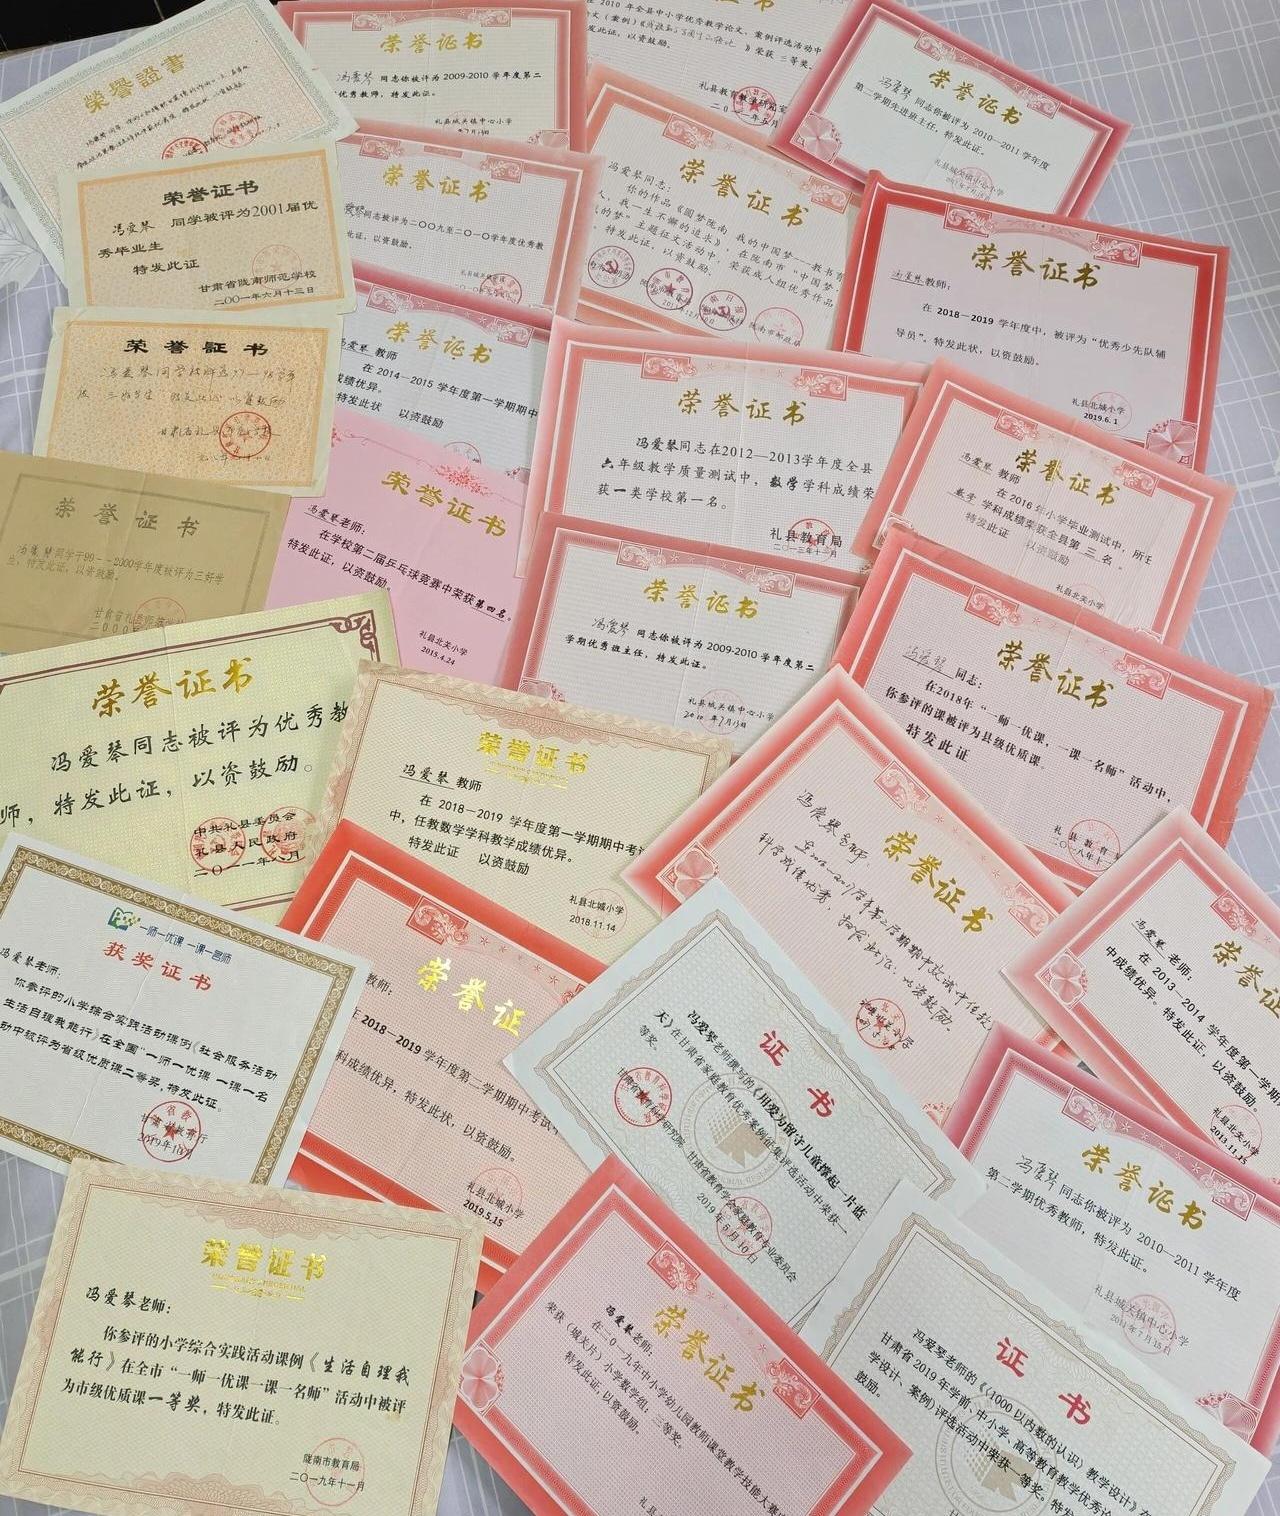 荣譽證書
荣誉证书
冯爱琴 同志你被评为 2009-2010 学年度第二
优秀教师，特发此证。
礼县城关镇中心小学
2010 年全县中小学优秀教学论文、案例评选活动中
》荣获 三等奖。
此证，以资鼓励。
礼县教育教学研究室
二〇一一年五月
荣誉证书
冯爱琴 同志你被评为 2010—2011 学年度
第二学期先进班主任，特发此证。
礼县城关镇中心小学
荣誉证书
冯爱琴 同学被评为2001届优
秀毕业生
特发此证
甘肃省陇南师范学校
二〇〇一年六月十三日
荣誉证书
爱琴同志被评为二〇〇九至二〇一〇学年度优秀教
此证，以资鼓励。
荣誉证书
冯爱琴同志：
你的作品《圆梦陇南 我的中国梦——教书育
人，我一生不懈的追求》，在陇南市“中国梦·
我的梦”主题征文活动中，荣获成人组优秀作品
。特发此证，以资鼓励。
荣誉证书
冯爱琴教师：
在 2018—2019 学年度中，被评为“优秀少先队辅
导员”。特发此状，以资鼓励。
礼县北城小学
2019.6.1
荣誉証书
冯爱琴同学被评为97—98学年
度 三好学生 特发此证 以资鼓励
荣誉证书
冯爱琴 教师
在 2014—2015 学年度第一学期期中
成绩优异。
特发此状 以资鼓励
荣誉证书
冯爱琴同志在2012—2013学年度全县
六年级教学质量测试中，数学学科成绩荣
获一类学校第一名。
礼县教育局
二〇一三年十一月
荣誉证书
冯爱琴 教师
在 2016 年小学毕业测试中，所任
数学 学科成绩荣获全县第 三 名。
特发此证 以资鼓励
礼县北关小学
荣誉证书
冯爱琴同学于99--2000学年度被评为三好学
生，特发此证，以资鼓励。
荣誉证书
冯爱琴老师：
在学校第二届乒乓球竞赛中荣获第四名。
特发此证，以资鼓励。
礼县北关小学
2015.4.24
荣誉证书
冯爱琴 同志你被评为 2009-2010 学年度第二
学期优秀班主任，特发此证。
礼县城关镇中心小学
2010 年7月15日
荣誉证书
冯爱琴 同志：
在2018年“一师一优课，一课一名师”活动中，
你参评的课被评为县级优质课。
特发此证
礼县教育局
二〇一八年十一
荣誉证书
冯爱琴同志被评为优秀教
师，特发此证，以资鼓励。
中共礼县委员会
礼县人民政府
二〇二一年八月
荣誉证书
冯爱琴 教师
在 2018—2019 学年度第一学期期中考试
中，任教数学学科教学成绩优异。
特发此证 以资鼓励
礼县北城小学
2018.11.14
荣誉证书
冯爱琴老师：
科学成绩优秀，特发此证，以资鼓励。
荣誉证
冯爱琴 老师：
在 2013—2014 学年度第一学期
中成绩优异。特发此证，以资鼓励。
礼县北关小学
2013.11.15
一师一优课 一课一名师
获奖证书
冯爱琴老师：
你参评的小学综合实践活动课例《社会服务活动
生活自理我能行》在全国“一师一优课 一课一名
动中被评为省级优质课二等奖，特发此证。
荣誉证
教师：
在 2018—2019 学年度第二学期期中考试
科成绩优异，特发此状，以资鼓励。
礼县北城小学
2019.5.15
证书
冯爱琴老师撰写的《用爱为留守儿童撑起一片蓝
天》在甘肃省家庭教育优秀案例征集评选活动中荣获一
等奖。
甘肃省教育科学研究院
甘肃省教育学会家庭教育专业委员会
2019年5月10日
荣誉证书
冯爱琴同志你被评为 2010—2011 学年度
第二学期优秀教师，特发此证。
礼县城关镇中心小学
2011 年7月15日
荣誉证书
冯爱琴老师：
你参评的小学综合实践活动课例《生活自理我
能行》在全市“一师一优课一课一名师”活动中被评
为市级优质课一等奖，特发此证。
陇南市教育局
二〇一九年十一月
荣誉证书
冯爱琴老师：
在二〇一九年中小学幼儿园教师课堂教学技能大赛
荣获（城关片）小学数学组：三等奖。
特发此证，以资鼓励。
礼县
证书
冯爱琴老师的《〈1000以内数的认识〉教学设计》在
甘肃省2019年学前、中小学、高等教育教学优秀论
学设计、案例）评选活动中荣获一等奖。特发
鼓励。